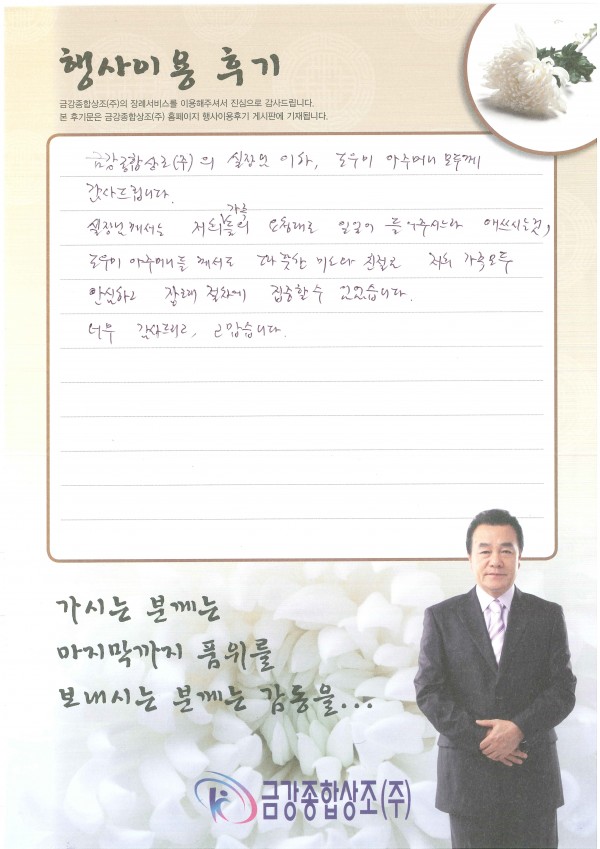 행사이용 후기
금강종합상조(주)의 장례서비스를 이용해주셔서 진심으로 감사드립니다.
본 후기문은 금강종합상조(주) 홈페이지 행사이용후기 게시판에 기재됩니다.
금강종합상조(주)의 실장님 이하, 도우미 아주머니 모두께
감사드립니다.
실장님께서는 저희 가족들의 요청대로 일일이 들어주시느라 애쓰시는것,
도우미 아주머니들 께서도 따뜻한 미소와 친절로 저희 가족모두
안심하고 장례 절차에 집중할 수 있었습니다.
너무 감사드리고, 고맙습니다.
가시는 분께는
마지막까지 품위를
보내시는 분께는 감동을...
금강종합상조(주)